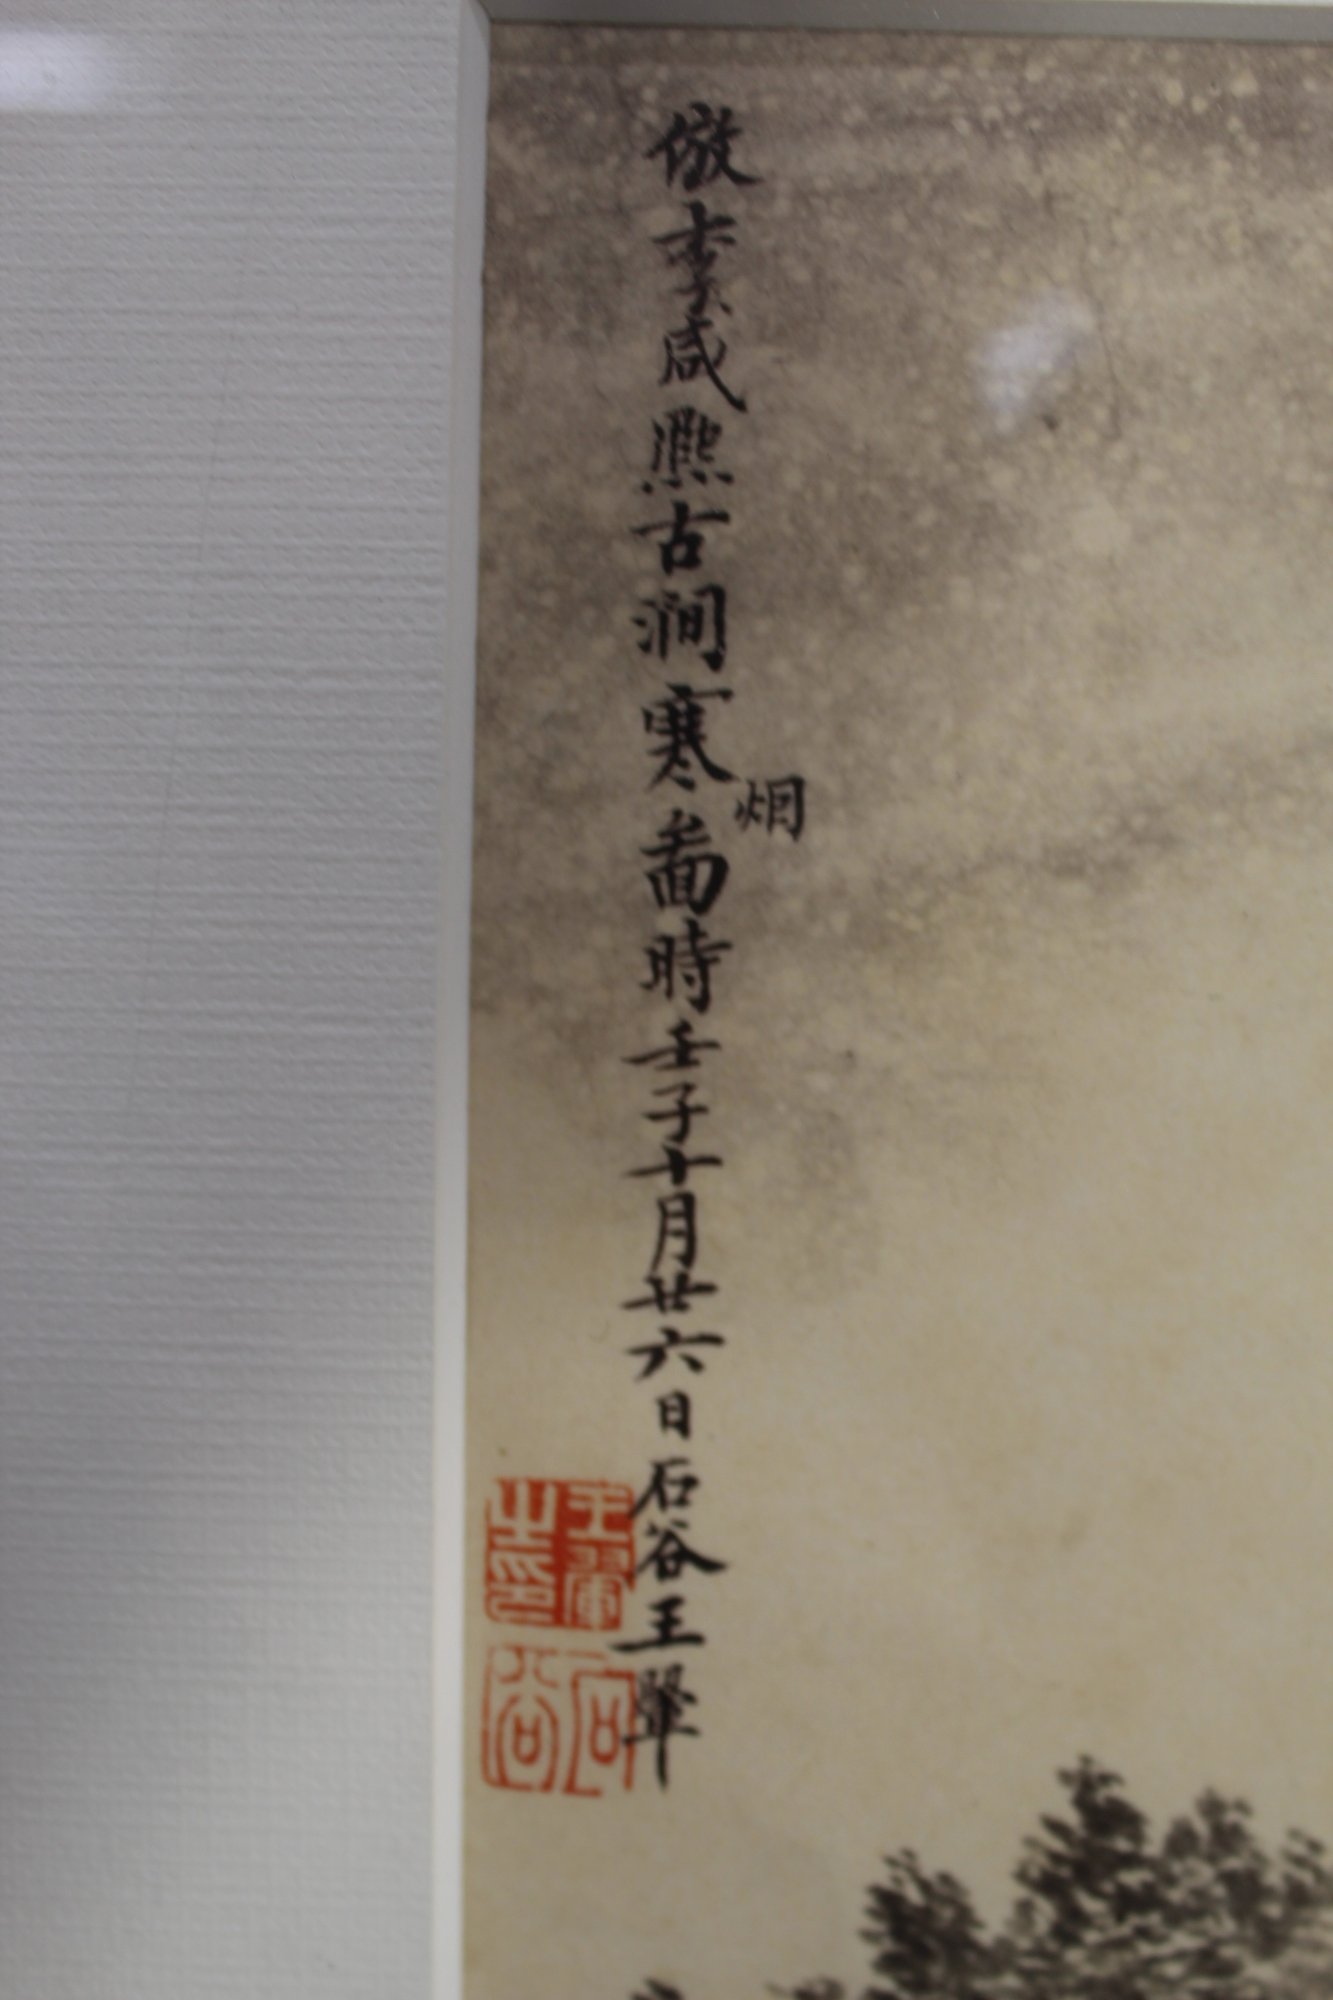 倣李咸熙古澗寒烟圖時壬子十月廿六日石谷王翬
王翬之印
石谷